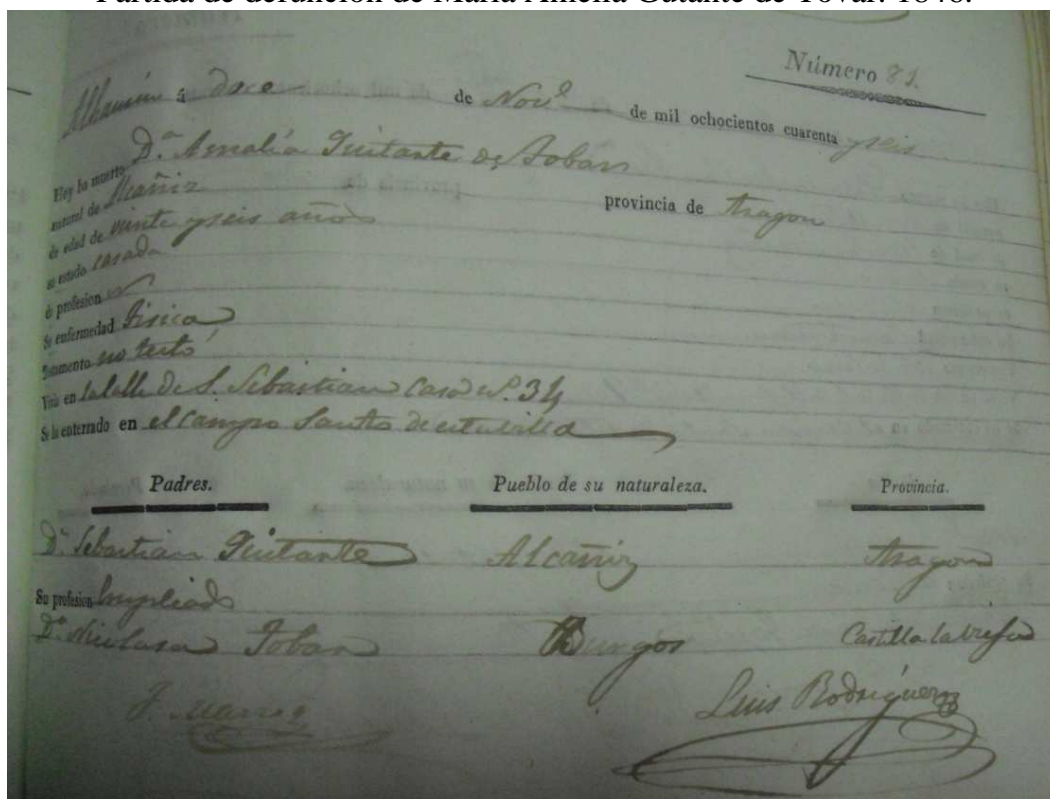 Partida de defunción de María Amelia Gutante de Tovar. 1846.
Número 81.
Alhaurín á doce de Nov.e de mil ochocientos cuarenta y seis
Hoy ha muerto D.a Amalia Guitarte de Tobar
natural de Alcañiz provincia de Aragon
de edad de veinte y seis años
su estado casada
de profesion
Su enfermedad Tisica
Testamento no testó
Vivia en la Calle de S. Sebastian Casa n.o 34
Se ha enterrado en el Campo Santo de esta villa
Padres. Pueblo de su naturaleza. Provincia.
D.n Sebastian Guitarte Alcañiz Aragon
Su profesion Empleado
D.a Nicolasa Tobar Burgos Castilla la vieja
Luis Rodriguez